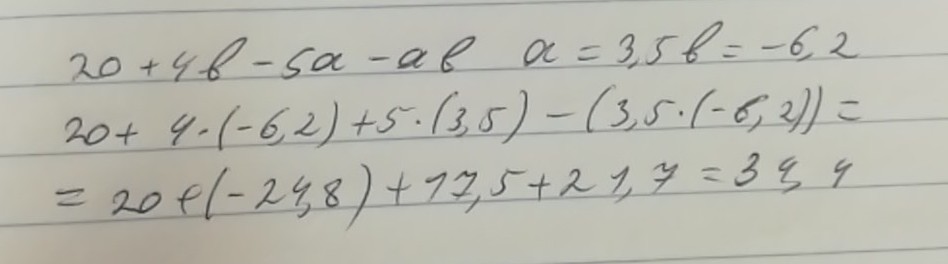 20 + 4b - 5a - ab a = 3,5 b = -6,2
20 + 4·(-6,2) + 5·(3,5) - (3,5·(-6,2)) =
= 20 + (-24,8) + 17,5 + 21,7 = 34,4